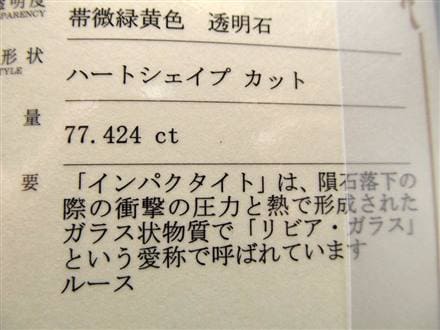 透明度 帯微緑黄色 透明石
PARENCY
形状 ハートシェイプ カット
TYLE
量 77.424 ct
要 「インパクタイト」は、隕石落下の
際の衝撃の圧力と熱で形成された
ガラス状物質で「リビア・ガラス」
という愛称で呼ばれています
ルース